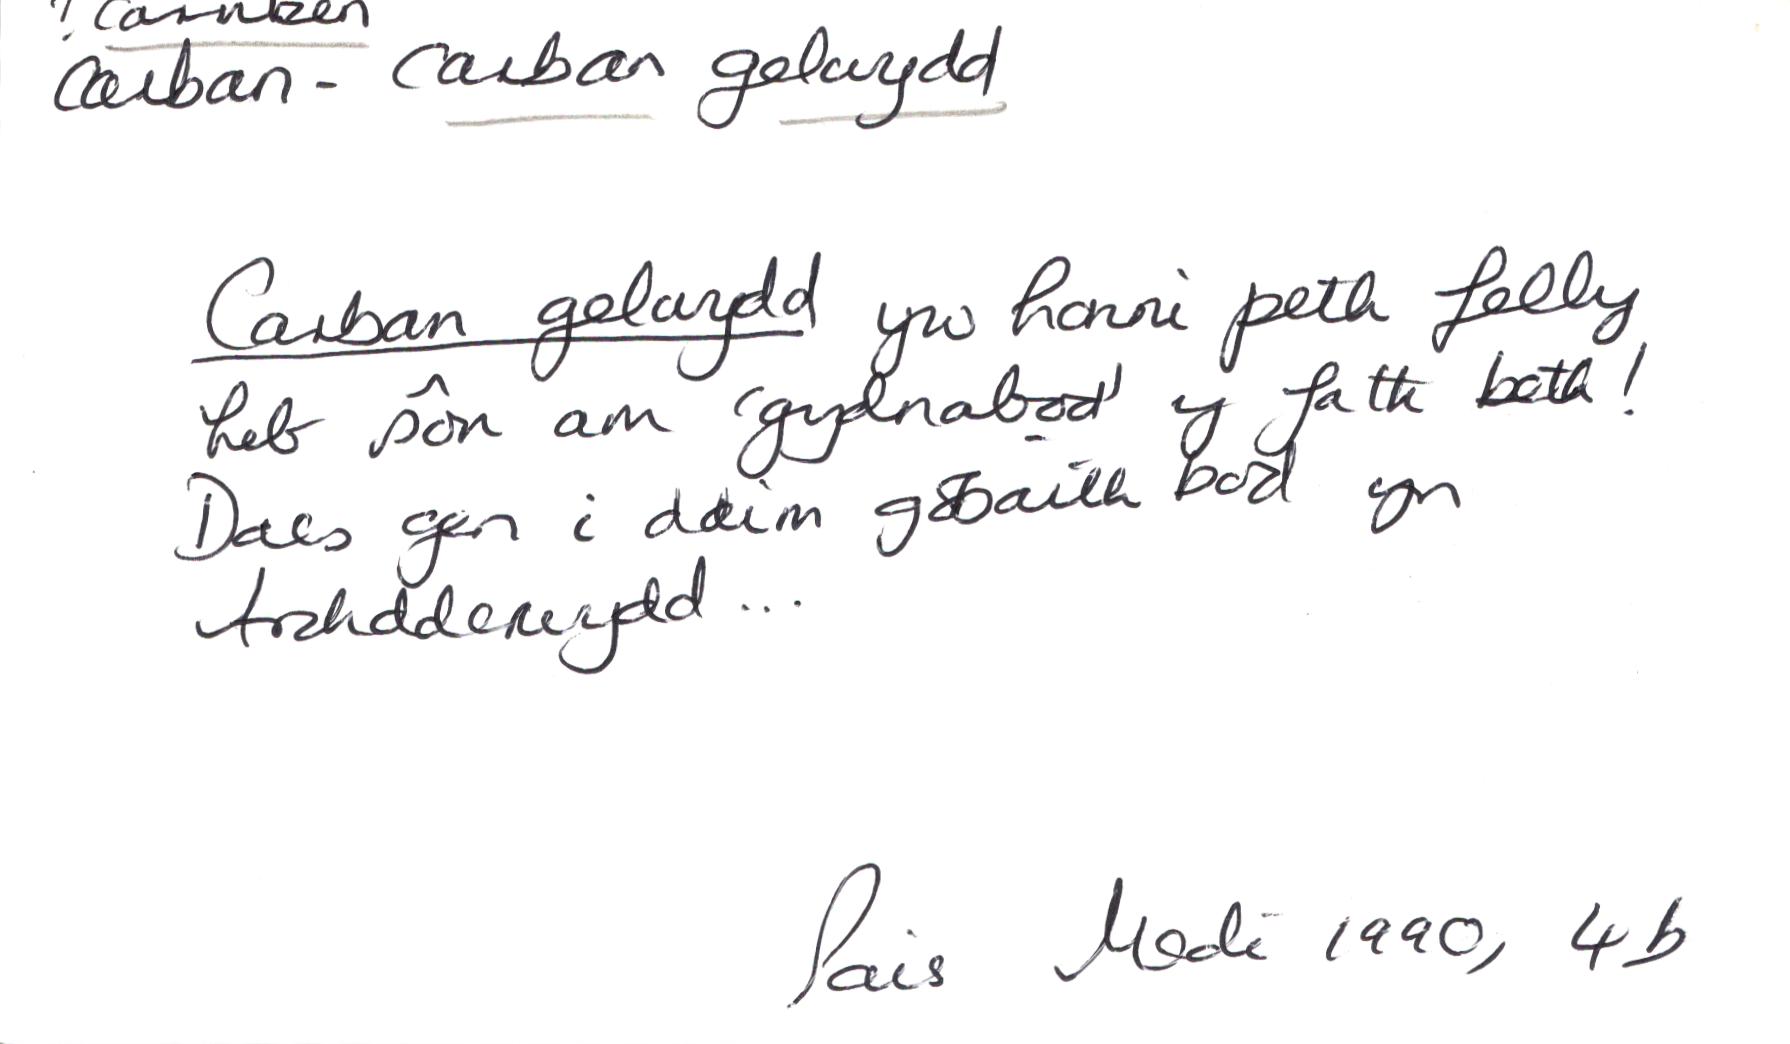 Carban - Carban gelwydd
Carban gelwydd yw honni peth felly
heb sôn am 'gydnabod' y fath beth!
Does gen i ddim gobaith bod yn
Archdderwydd...
Pais Medi 1990, 4b